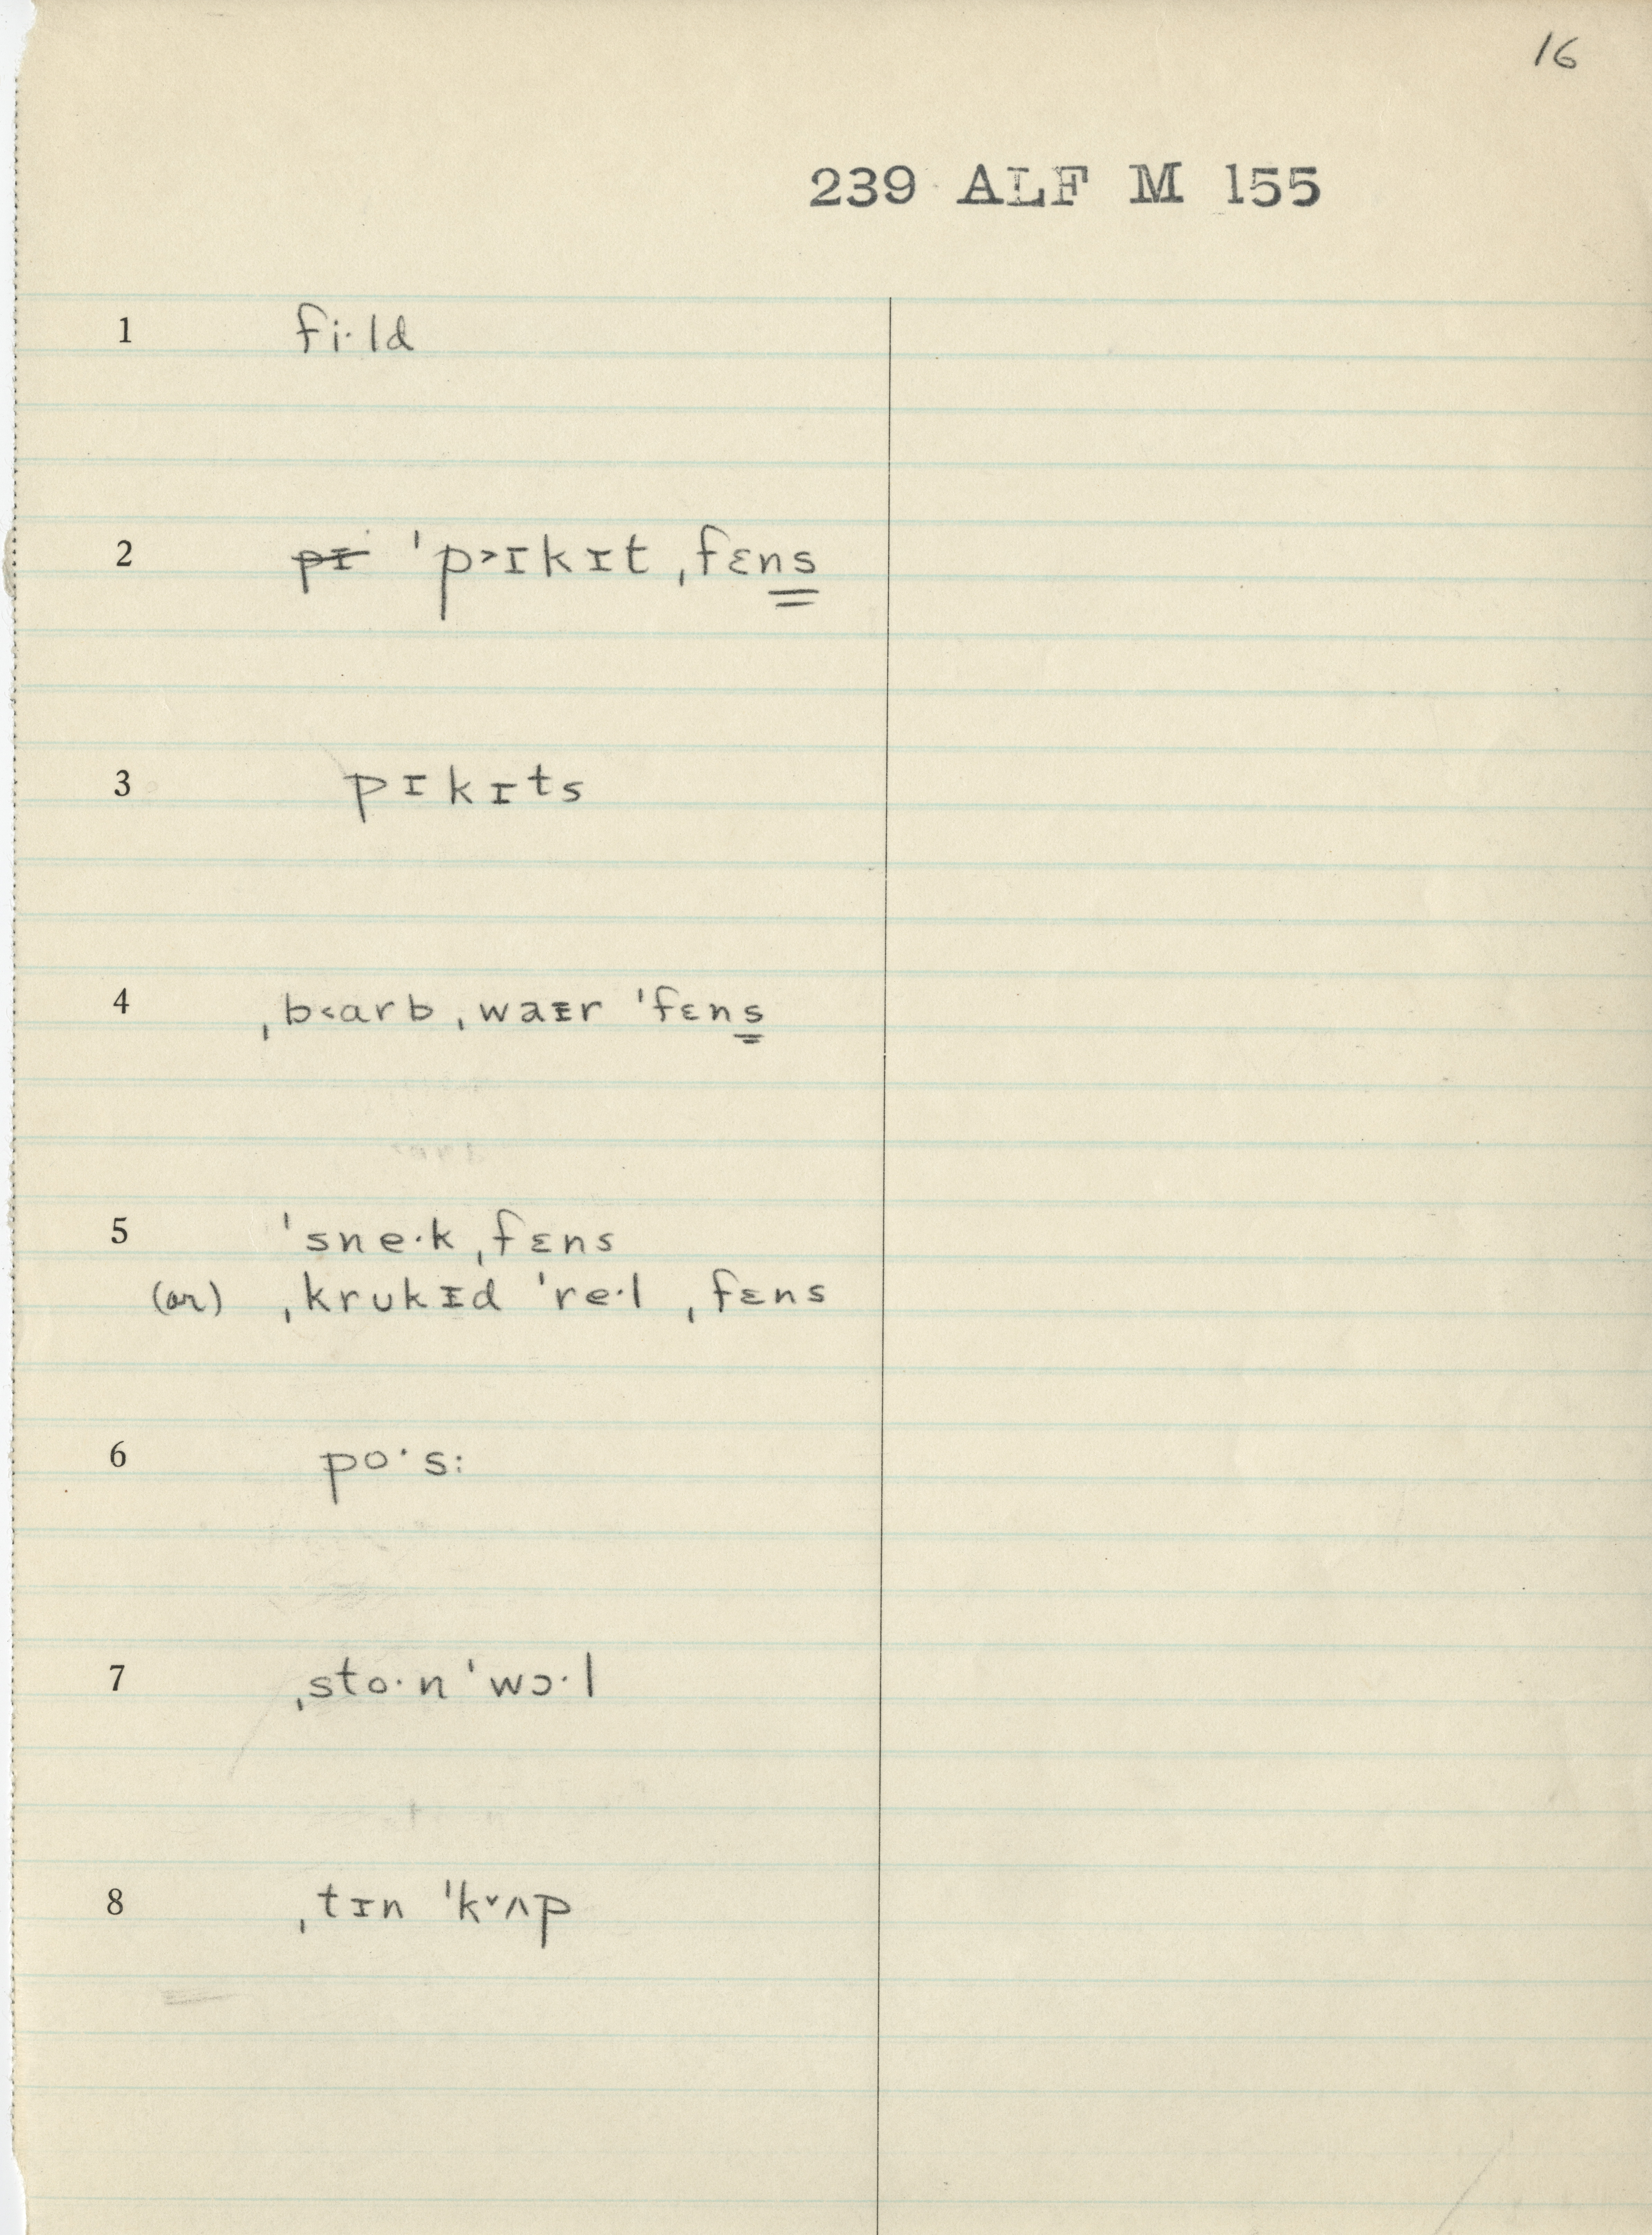 16
239 ALF M 155
1 fi·ld
2 pɪ ˈp˃ɪkɪt ˌfɛns
3 pɪkɪts
4 ˌb˂arb ˌwaɪr ˈfɛns
5 ˈsne·k ˌfɛns
(or) ˌkrukɪd ˈre·l ˌfɛns
6 po·s:
7 ˌsto·n ˈwɔ·l
8 ˌtɪn ˈk˅ʌp